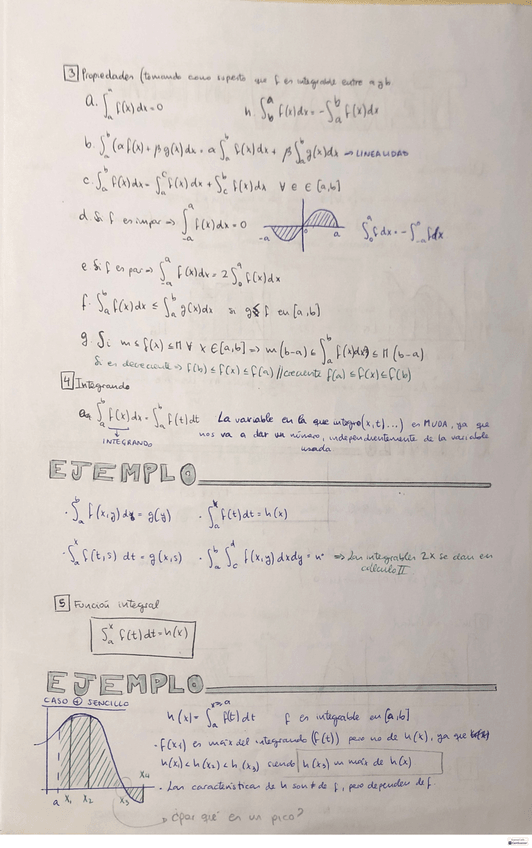 3 Propiedades (tomando como supuesto que f es integrable entre a y b
a. ∫_a^a f(x)dx = 0
h. ∫_b^a f(x)dx = -∫_a^b f(x)dx
b. ∫_a^b (αf(x) + βg(x)dx = α∫_a^b f(x)dx + β∫_a^b g(x)dx → LINEALIDAD
c. ∫_a^b f(x)dx = ∫_a^c f(x)dx + ∫_c^b f(x)dx ∀ c ∈ [a,b]
d. Si f es impar ⇒ ∫_{-a}^a f(x)dx = 0
-a 0 a
∫_0^a f dx = -∫_{-a}^0 f dx
e. Si f es par ⇒ ∫_{-a}^a f(x)dx = 2∫_0^a f(x)dx
f. ∫_a^b f(x)dx ≤ ∫_a^b g(x)dx si g f en [a,b]
g. Si m ≤ f(x) ≤ M ∀ x ∈ [a,b] ⇒ m(b-a) ≤ ∫_a^b f(x)dx ≤ M(b-a)
Si es decreciente ⇒ f(b) ≤ f(x) ≤ f(a) // creciente f(a) ≤ f(x) ≤ f(b)
4 Integrando
∫_a^b f(x)dx = ∫_a^b f(t)dt La variable en la que integro (x,t...) es MUDA, ya que
INTEGRANDO nos va a dar un número, independientemente de la variable
usada
EJEMPLO
· ∫_a^b f(x,y)dx = g(y) · ∫_a^x f(t)dt = h(x)
· ∫_a^x f(t,s) dt = g(x,s) · ∫_a^b ∫_c^d f(x,y)dxdy = nº ⇒ Las integrables 2x se dan en
cálculo II
5 Función integral
∫_a^x f(t)dt = h(x)
EJEMPLO
CASO + SENCILLO
h(x) = ∫_a f(t)dt f es integrable en [a,b]
· f(x₁) es máx del integrando (f(t)) pero no de h(x), ya que
h(x₁) < h(x₂) < h(x₃) siendo h(x₃) un máx de h(x)
· Las características de h son ≠ de f, pero dependen de f.
a x₁ x₂ x₃ x₄
¿Por qué es un pico?